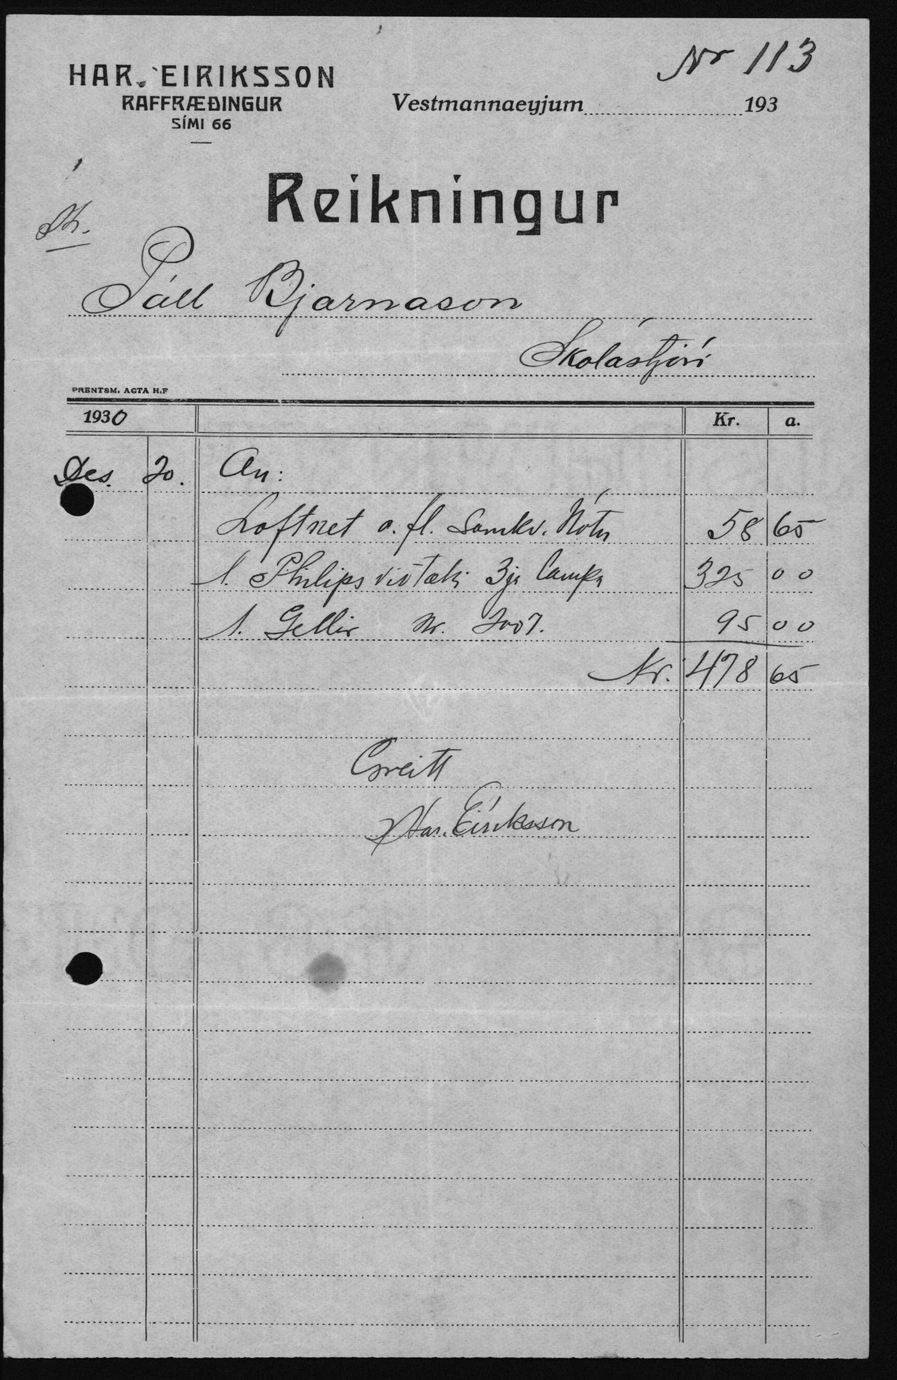 Nr 113
HAR. EIRIKSSON
RAFFRÆÐINGUR
SÍMI 66
Vestmannaeyjum 193
Reikningur
Páll Bjarnason
Skólastjóri
PRENTSM. ACTA H.F
1930 Kr. a.
Des. 20. An:
Loftnet o. fl. Samkv. Nótu 58 65
1. Philips viðtæki 3ja lampa 325 00
1. Gellir Nr. 2007. 95 00
Kr. 478 65
Greitt
Har. Eiríksson